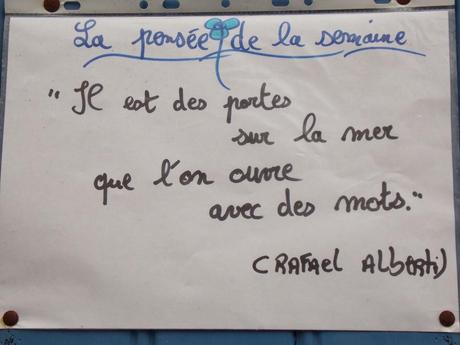 La pensée de la semaine
"Il est des portes
sur la mer
que l'on ouvre
avec des mots."
(RAFAEL ALBERTI)